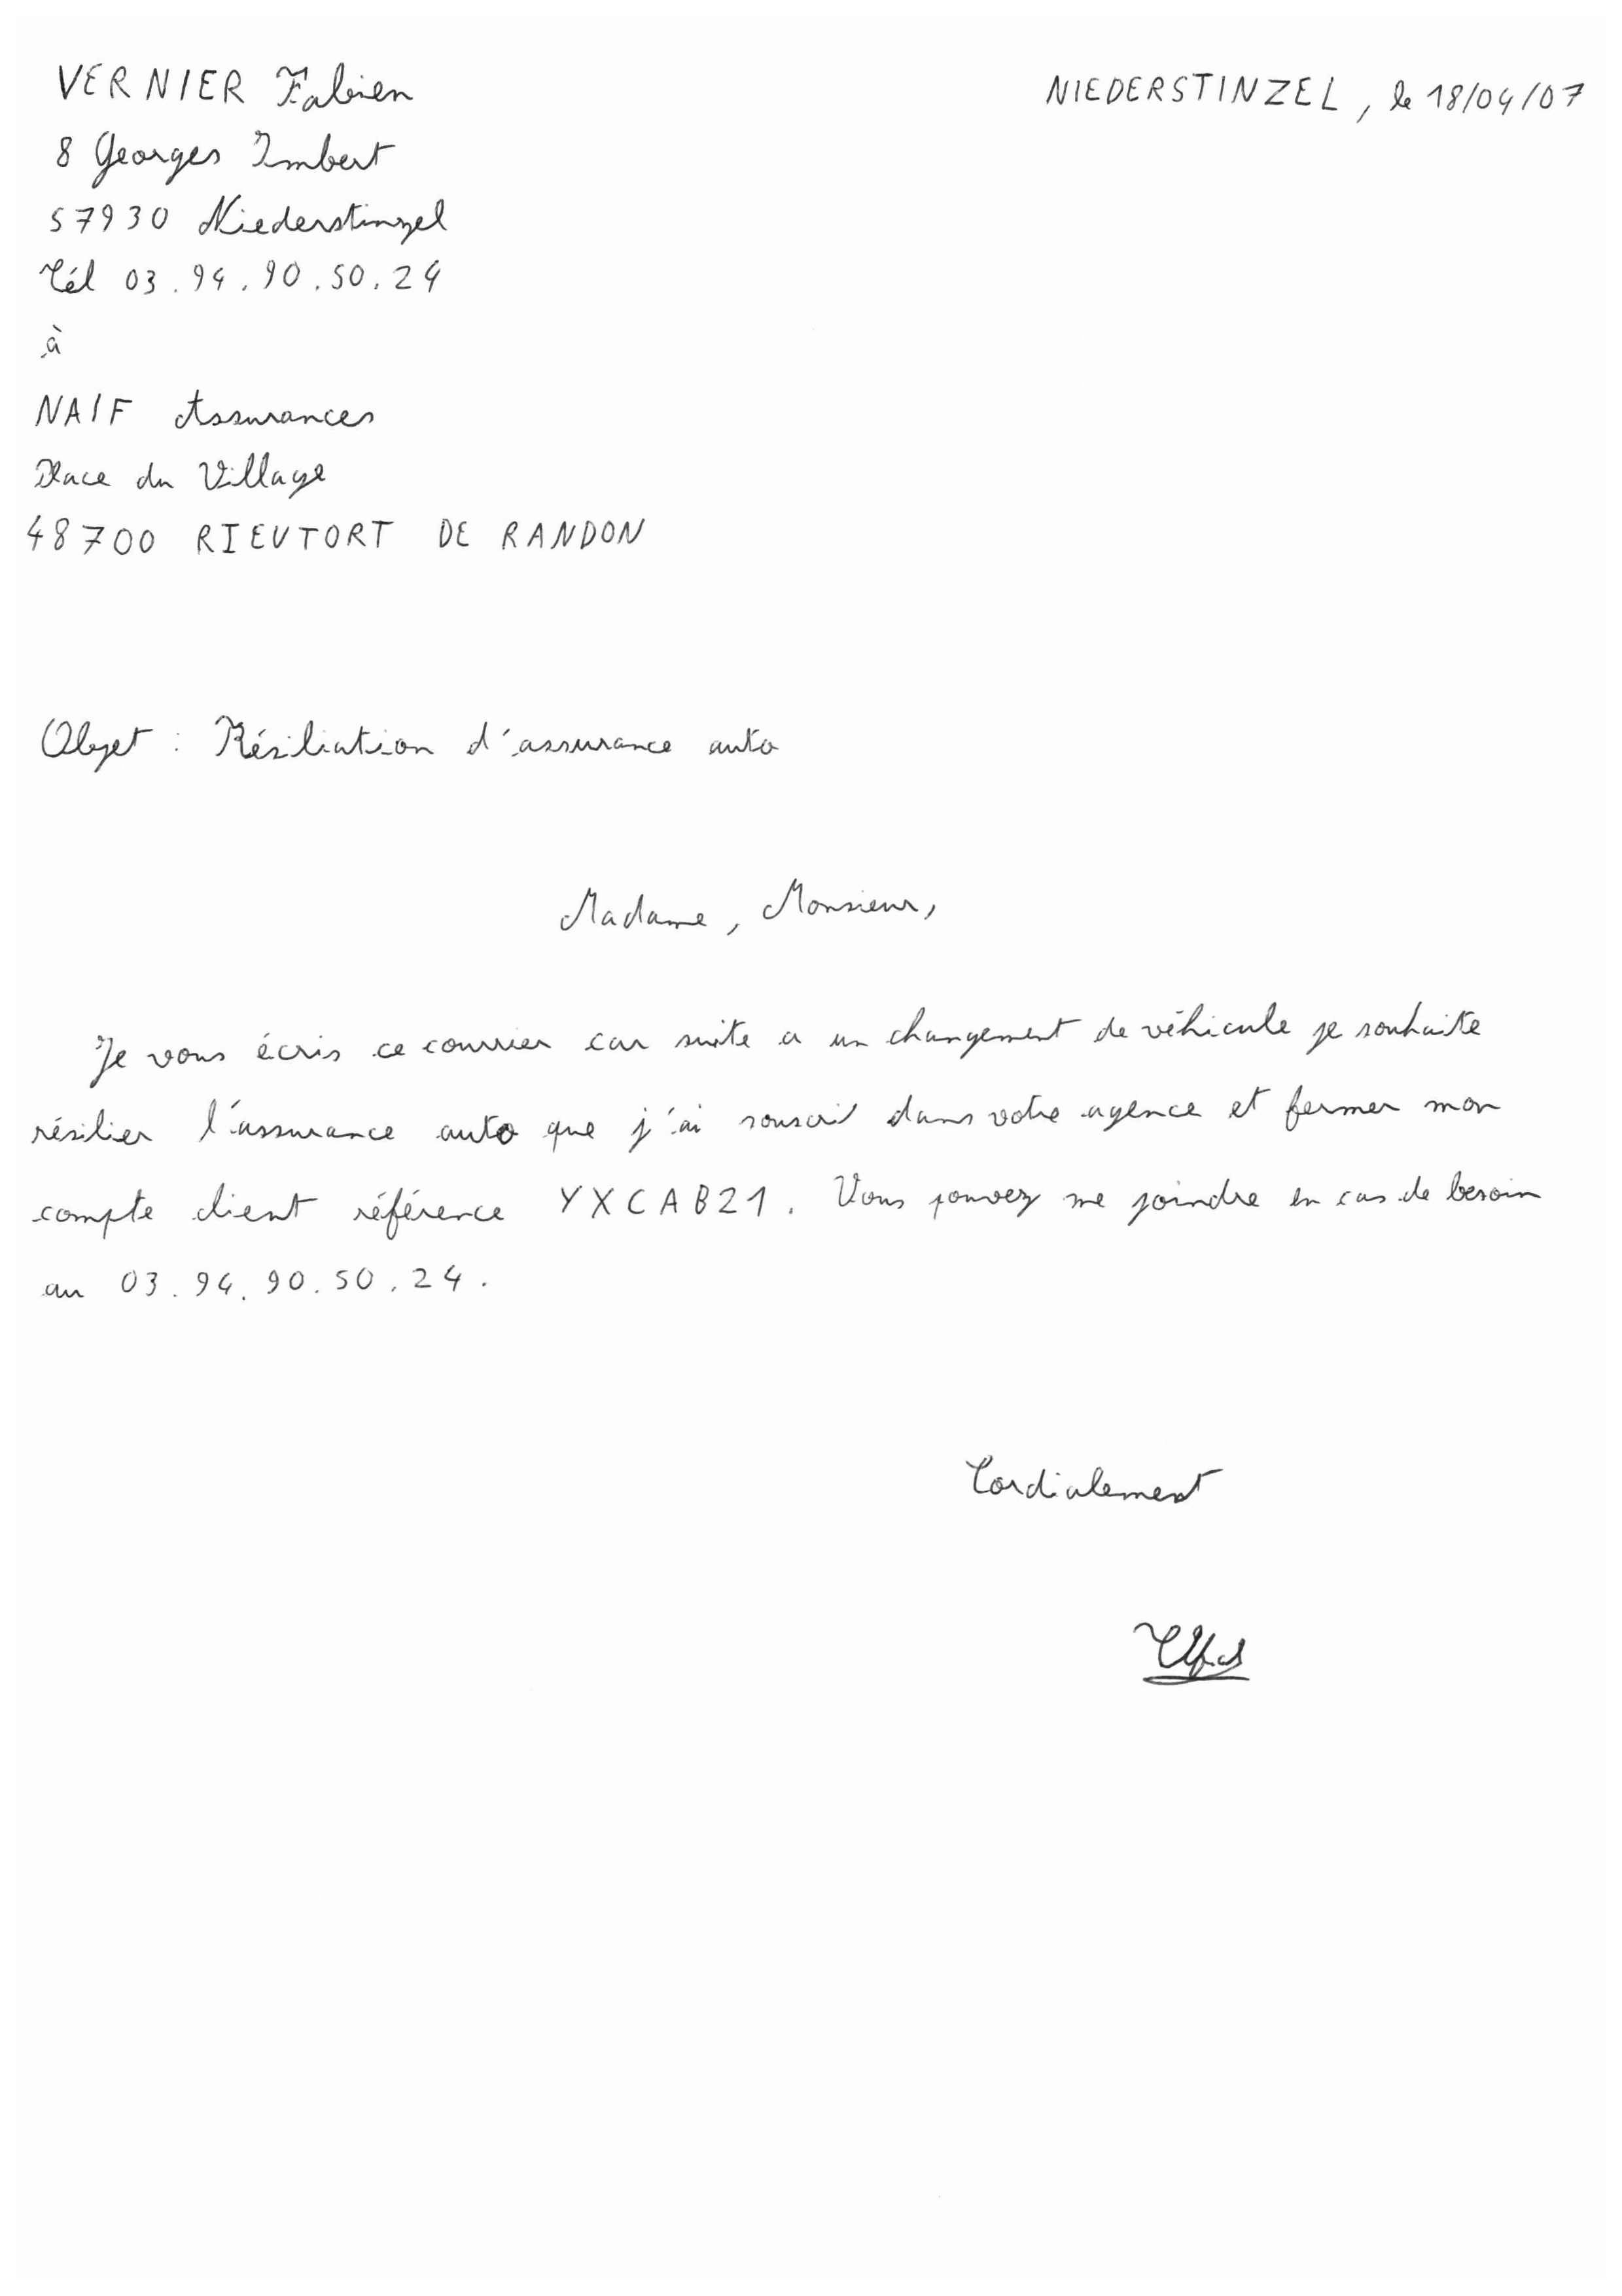 VERNIER Fabien
NIEDERSTINZEL, le 18/04/07
8 Georges Imbert
57930 Niederstinzel
Tél 03.94.90.50.24
à
NAIF Assurances
Place du Village
48700 RIEUTORT DE RANDON
Objet : Résiliation d'assurance auto
Madame, Monsieur,
Je vous écris ce courrier car suite a un changement de véhicule je souhaite
résilier l'assurance auto que j'ai souscrit dans votre agence et fermer mon
compte client référence YXCAB21. Vous pouvez me joindre en cas de besoin
au 03.94.90.50.24.
Cordialement